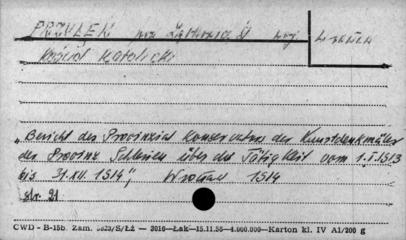 PRZYŁĘK pow. Ząbkowice Śl. woj. Wrocław
kościół katolicki
„Bericht des Provinzial Konservators der Kunstdenkmäler
der Provinz Schlesien über die Tätigkeit vom 1.I.1913
bis 31.XII.1914", Wrocław 1914
str. 21
CWD - B-15b. Zam. 5623/S/ŁŻ — 2016—Łak—15.11.55—4.000.000—Karton kl. IV A1/200 g